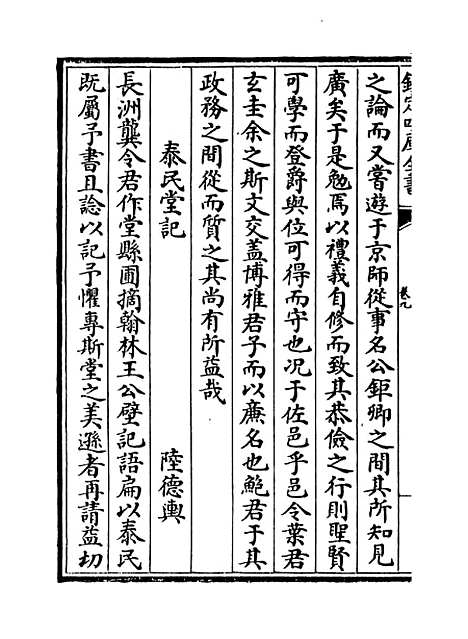 欽定四庫全書
卷九
之論而又嘗遊于京師從事名公鉅卿之間其所知見
廣矣于是勉焉以禮義自修而致其恭儉之行則聖賢
可學而登爵與位可得而守也况于佐邑乎邑令葉君
玄圭余之斯文交蓋博雅君子而以亷名也鮑君于其
政務之間從而質之其尚有所益哉
泰民堂記 陸德輿
長洲龔令君作堂縣圃摘翰林王公壁記語扁以泰民
既屬予書且諗以記予懼專斯堂之美遜者再請益切